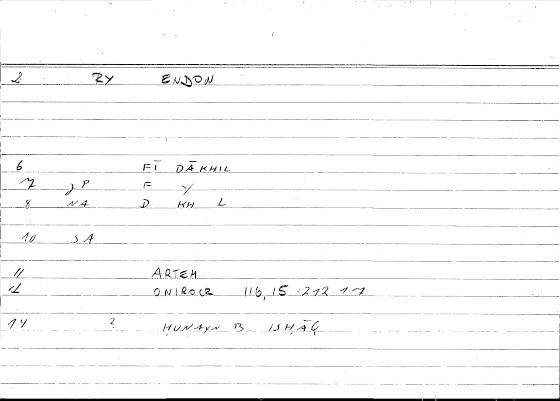 2 RY ENDON
6 FĪ DĀKHIL
7 JP F Y
8 NA D KH L
10 SA
11 ARTEM
12 ONIROCR 116,15 - 212.17
14 ? ḤUNAYN B ISḤĀQ